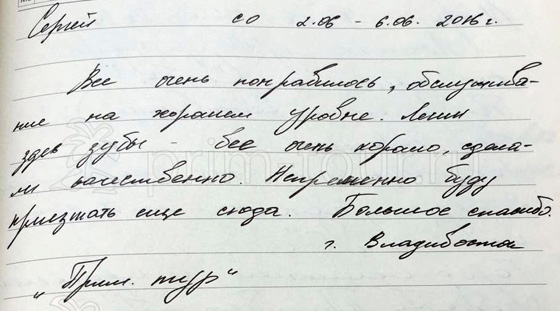 Сергей со 2.06 - 6.06. 2016 г.
Все очень понравилось, обслужива-
ние на хорошем уровне. Лечил
здесь зубы - все очень хорошо, сдела-
ли качественно. Непременно буду
приезжать еще сюда. Большое спасибо.
г. Владивосток
„Прим. тур"